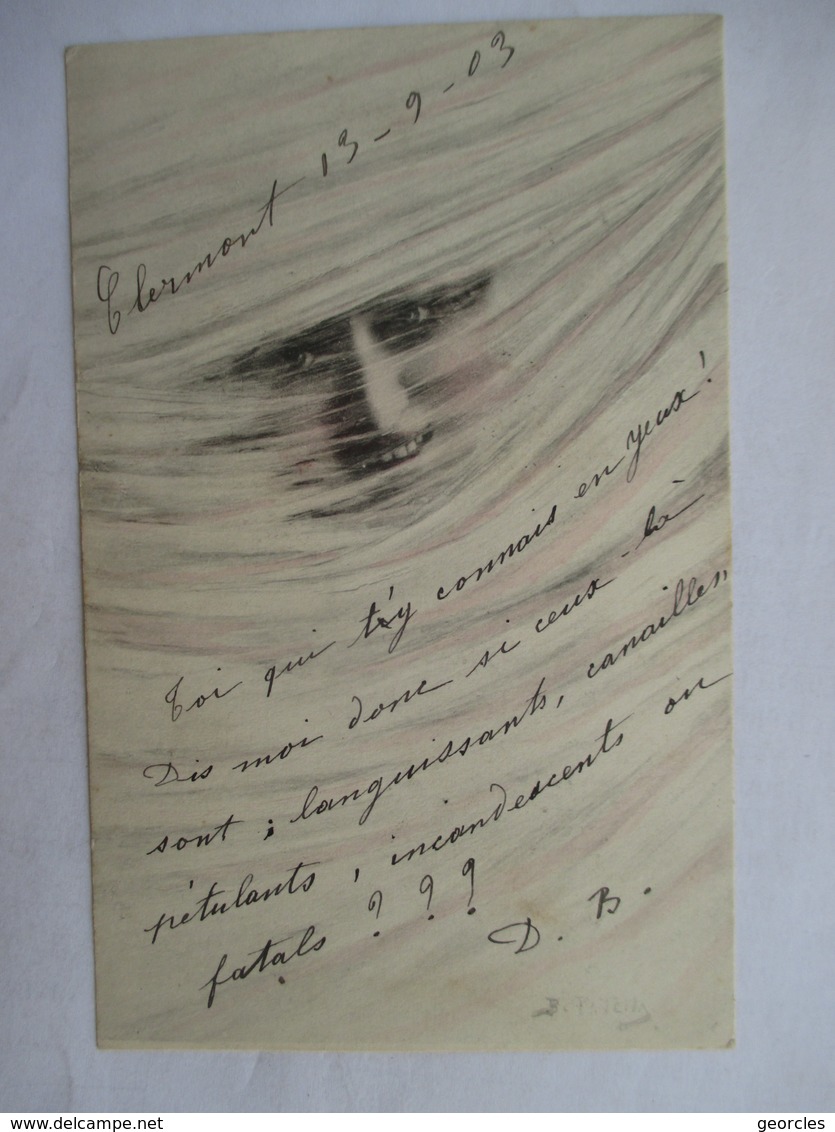 Clermont 13-9-03
Toi qui t'y connais en yeux!
Dis moi donc si ceux-là
sont; languissants, canailles,
pétulants, incandescents ou
fatals ???
D. B.
delcampe.net
georcles